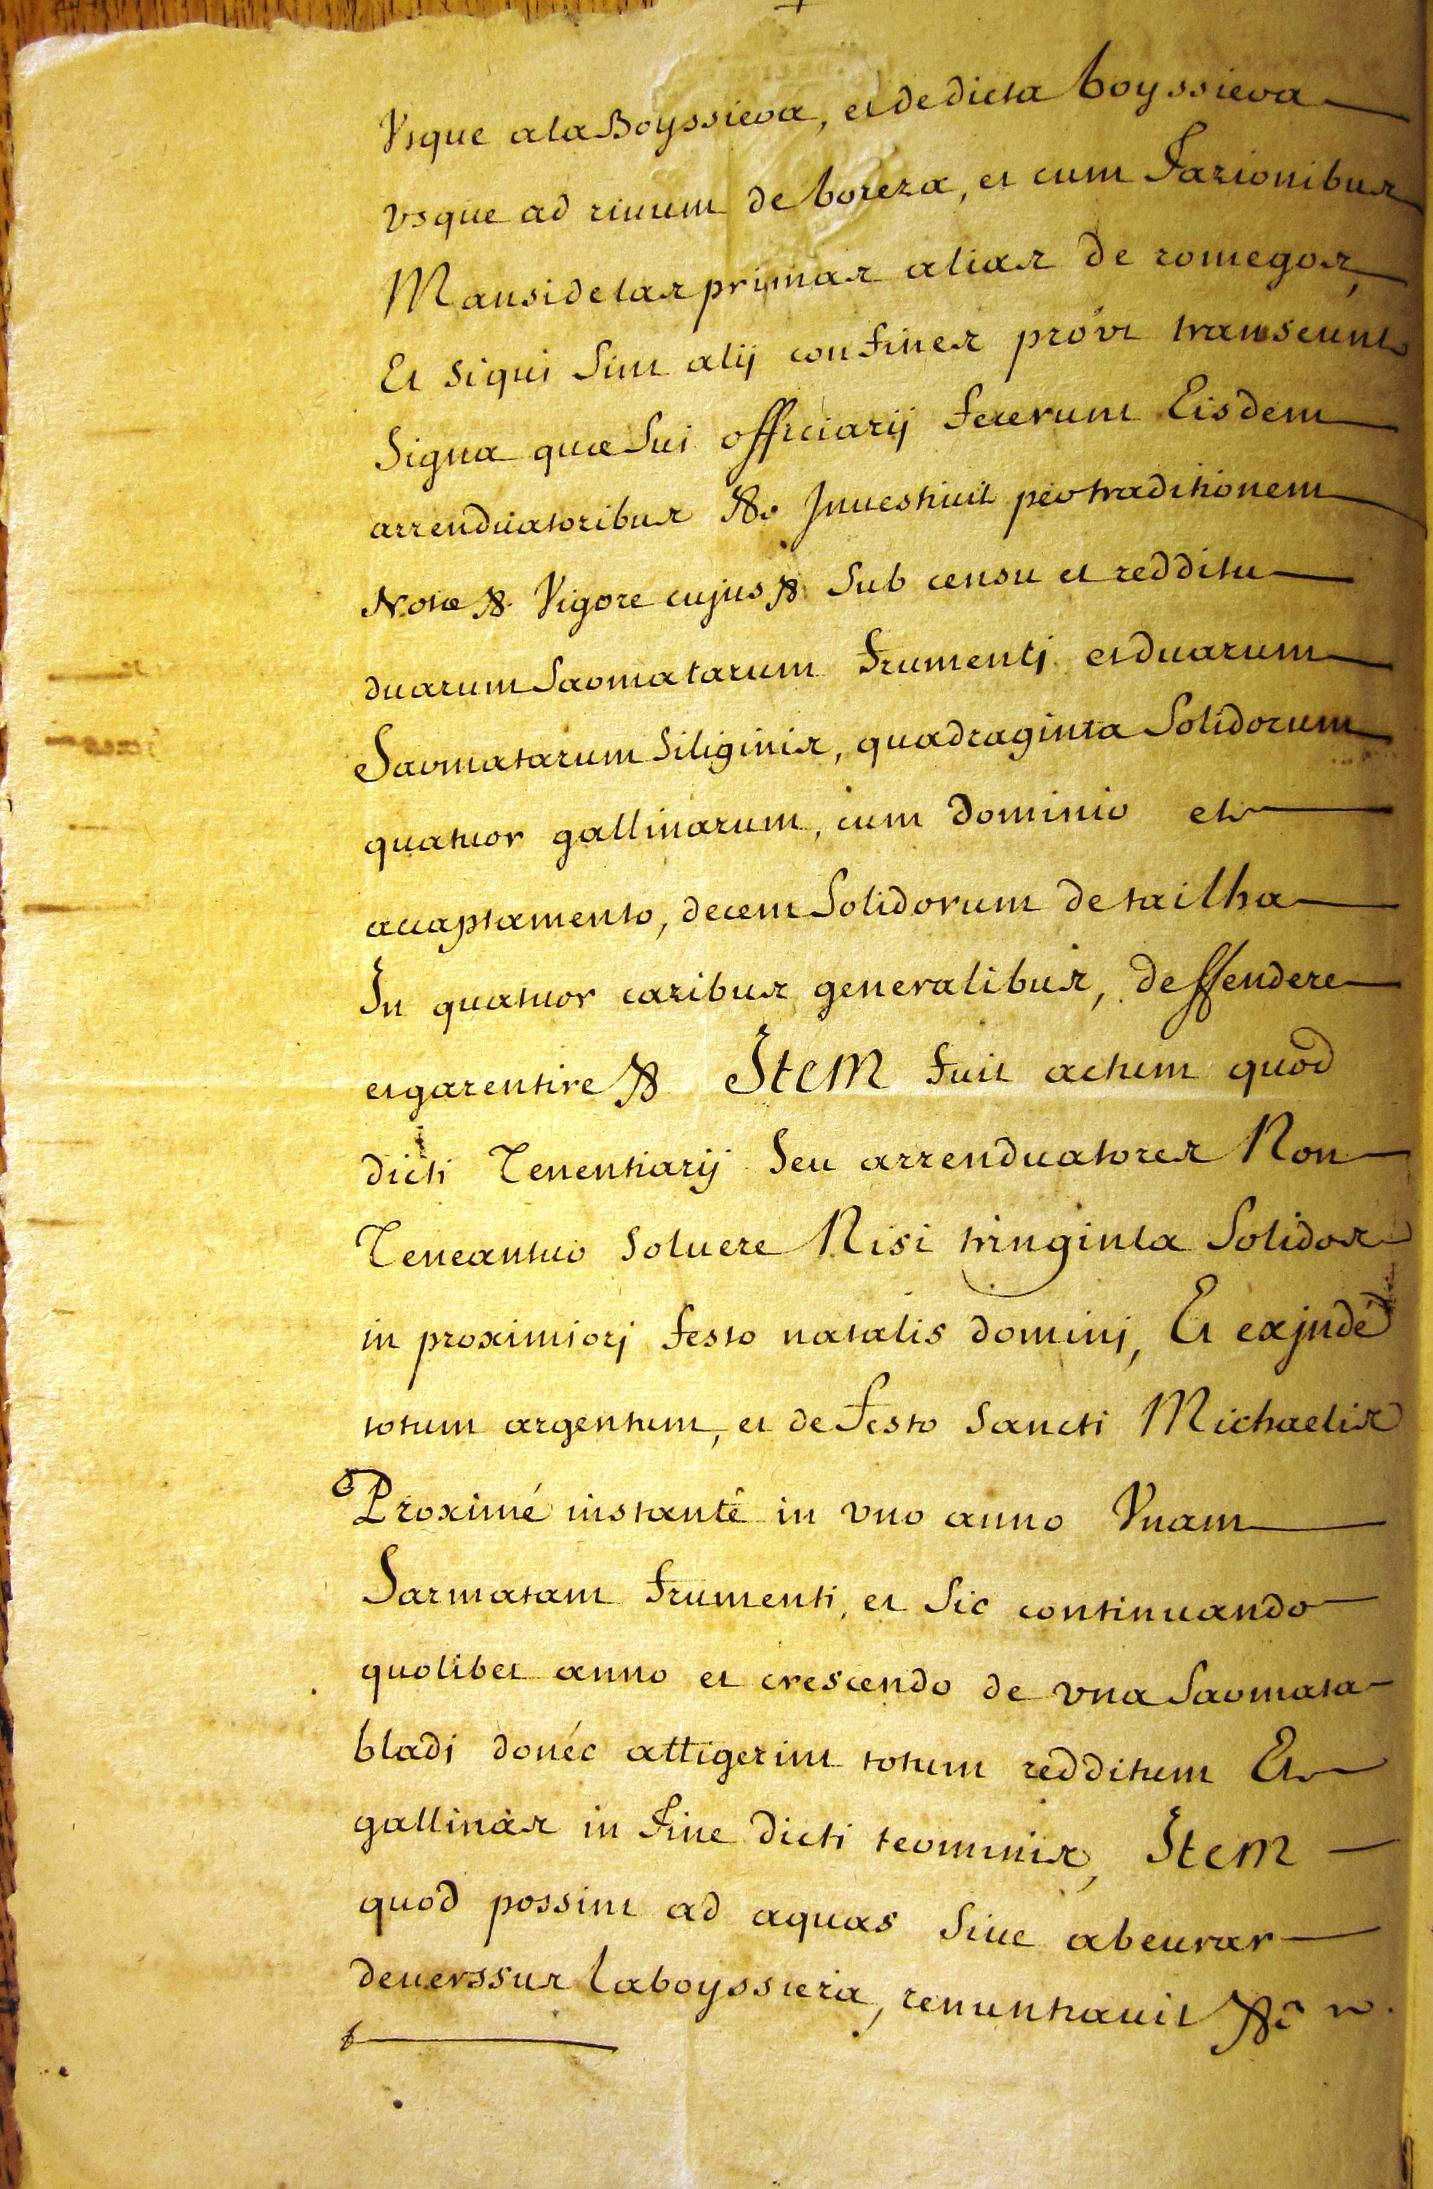 Vsque a la Boyssiera, et de dicta boyssiera
vsque ad riuum de boreza, et cum fazionibus
Mansi de las primas alias de romegos,
Et si qui sint alij confines proút transeunt
Signa quæ Sui officiarij fecerunt Eisdem
arrenduatoribus &c Jnuestiuit per traditionem
Notæ &c. Vigore cujus &c Sub censu et redditu
duarum Saumatarum frumentj et duarum
Saumatarum Siliginis, quadraginta Solidorum
quatuor gallinarum, cum dominio et
accaptamento, decem Solidorum de tailha
In quatuor casibus generalibus, deffendere
et garentire &c Item fuit actum quod
dicti Tenentiarij Seu arrenduatores Non
Teneantur Soluere Nisi tringinta Solidos
in proximiorj festo natalis dominj, Et exjndé
totum argentum, et de festo Sancti Michaelis
Proximé instanté in vno anno Vnam
Sarmatam frumenti, et Sic continuando
quolibet anno et crescendo de vna Saumata
bladi donéc attigerint totum redditum Et
gallinàs in fine dicti terminis, Item
quod possint ad aquas Siue abeurar
deuerssus laboyssiera, renuntiauit &c